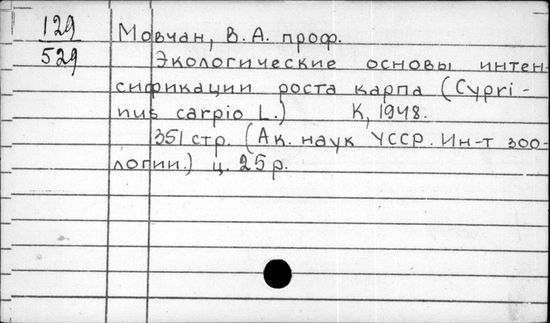 129
529
Мовчан, В. А. проф.
Экологические основы интен-
сификации роста карпа (Cypri-
nus carpio L.) К, 1948.
351 стр. (Ак. наук УССР. Ин-т зоо-
логии.) ц. 25 р.